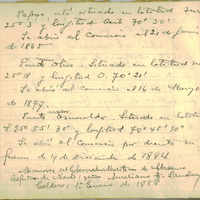 Paposo está situado en latitud Sur
25° 3' y longitud Oest 70° 30'
Se abrió al Comercio el 21 de Junio
de 1865
Punta Oliva. Situado en latitud S.
25° 18' y longitud O. 70° 21'
Se abrió al Comercio el 16 de Mayo
de 1877.
Punta Esmeralda. Situado en latitud
S. 25° 55' 30" y longitud 70° 45' 30"
Se abrió al Comercio por decreto su
premo de 14 de diciembre de 1884
Memoria del Gobernador Marítimo de Atacama
Capitán de Navío, señor Aureliano T.
Caldera, 1° Enero de 1888